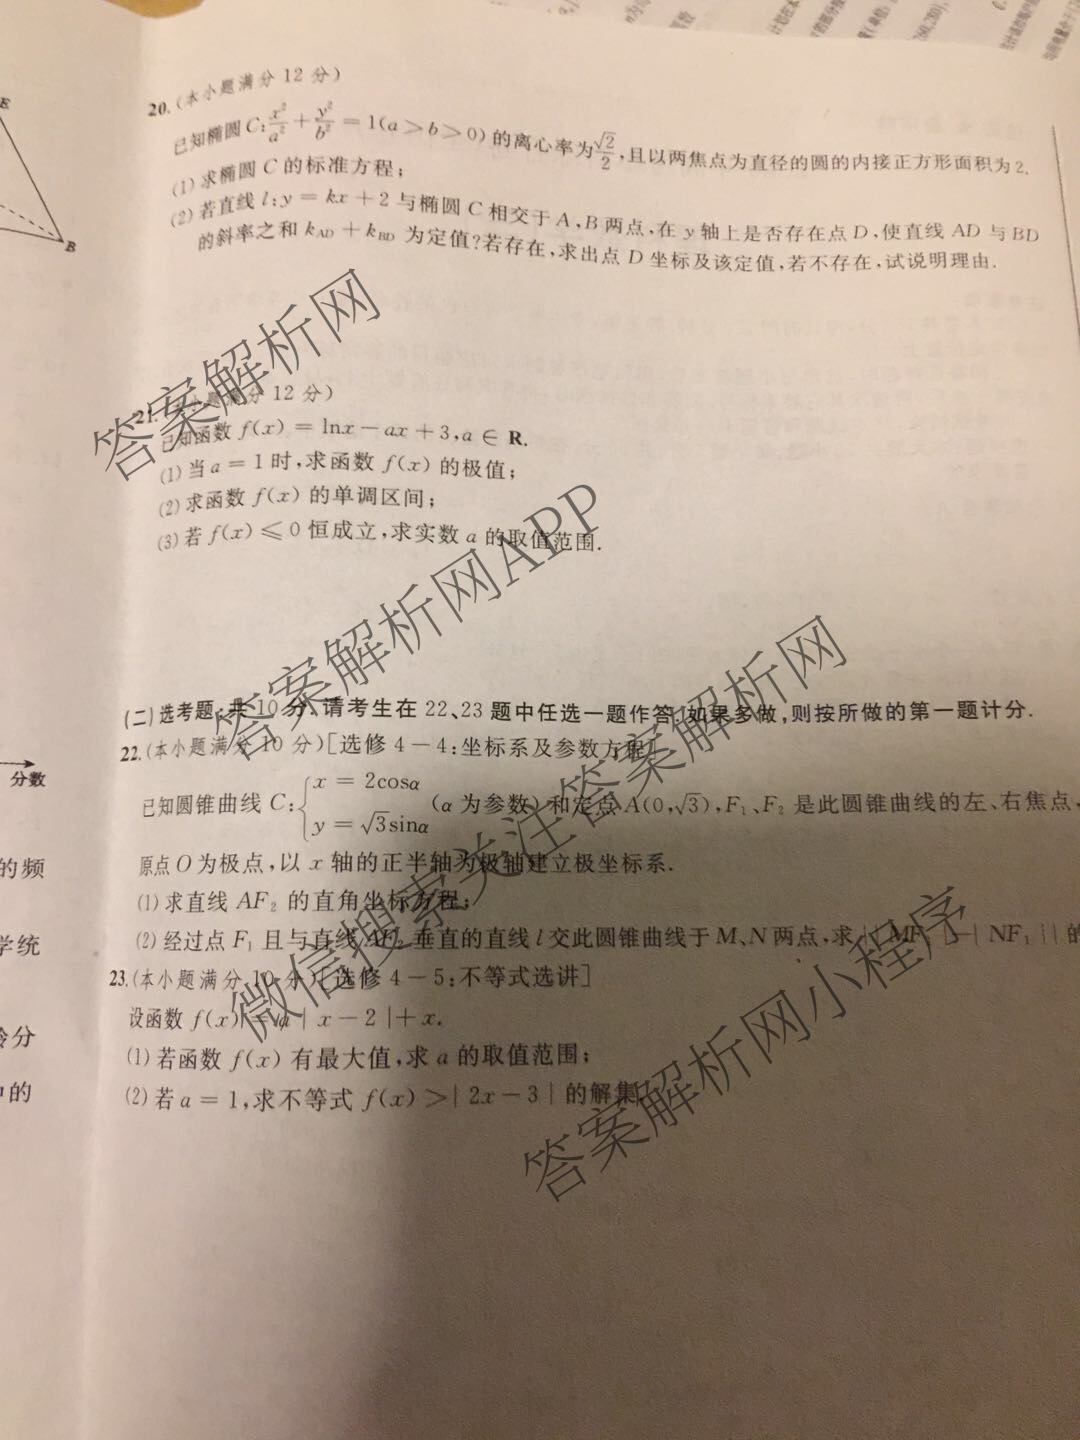 E
B
20.(本小题满分 12 分)
已知椭圆 C: x²/a² + y²/b² = 1(a > b > 0) 的离心率为 √2/2,且以两焦点为直径的圆的内接正方形面积为 2.
(1) 求椭圆 C 的标准方程;
(2) 若直线 l: y = kx + 2 与椭圆 C 相交于 A、B 两点,在 y 轴上是否存在点 D,使直线 AD 与 BD
的斜率之和 k_AD + k_BD 为定值?若存在,求出点 D 坐标及该定值,若不存在,试说明理由.
21.(本小题满分 12 分)
已知函数 f(x) = lnx − ax + 3, a ∈ R.
(1) 当 a = 1 时,求函数 f(x) 的极值;
(2) 求函数 f(x) 的单调区间;
(3) 若 f(x) ⩽ 0 恒成立,求实数 a 的取值范围.
(二)选考题:共 10 分.请考生在 22、23 题中任选一题作答.如果多做,则按所做的第一题计分.
22.(本小题满分 10 分)[选修 4－4:坐标系及参数方程]
分数
已知圆锥曲线 C: { x = 2cosα
y = √3sinα (α 为参数) 和定点 A(0,√3), F₁、F₂ 是此圆锥曲线的左、右焦点,
原点 O 为极点,以 x 轴的正半轴为极轴建立极坐标系.
的频
(1) 求直线 AF₂ 的直角坐标方程;
(2) 经过点 F₁ 且与直线 AF₂ 垂直的直线 l 交此圆锥曲线于 M、N 两点,求 || MF₁ | − | NF₁ || 的
学统
23.(本小题满分 10 分)[选修 4－5:不等式选讲]
设函数 f(x) = a | x − 2 | + x.
分
(1) 若函数 f(x) 有最大值,求 a 的取值范围;
的
(2) 若 a = 1,求不等式 f(x) > | 2x − 3 | 的解集.
答案解析网
答案解析网APP
微信搜索关注答案解析网
答案解析网小程序